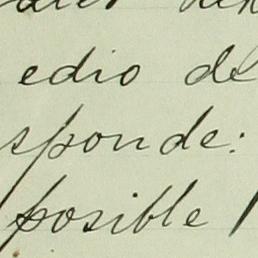 edio de
sponde:
posible